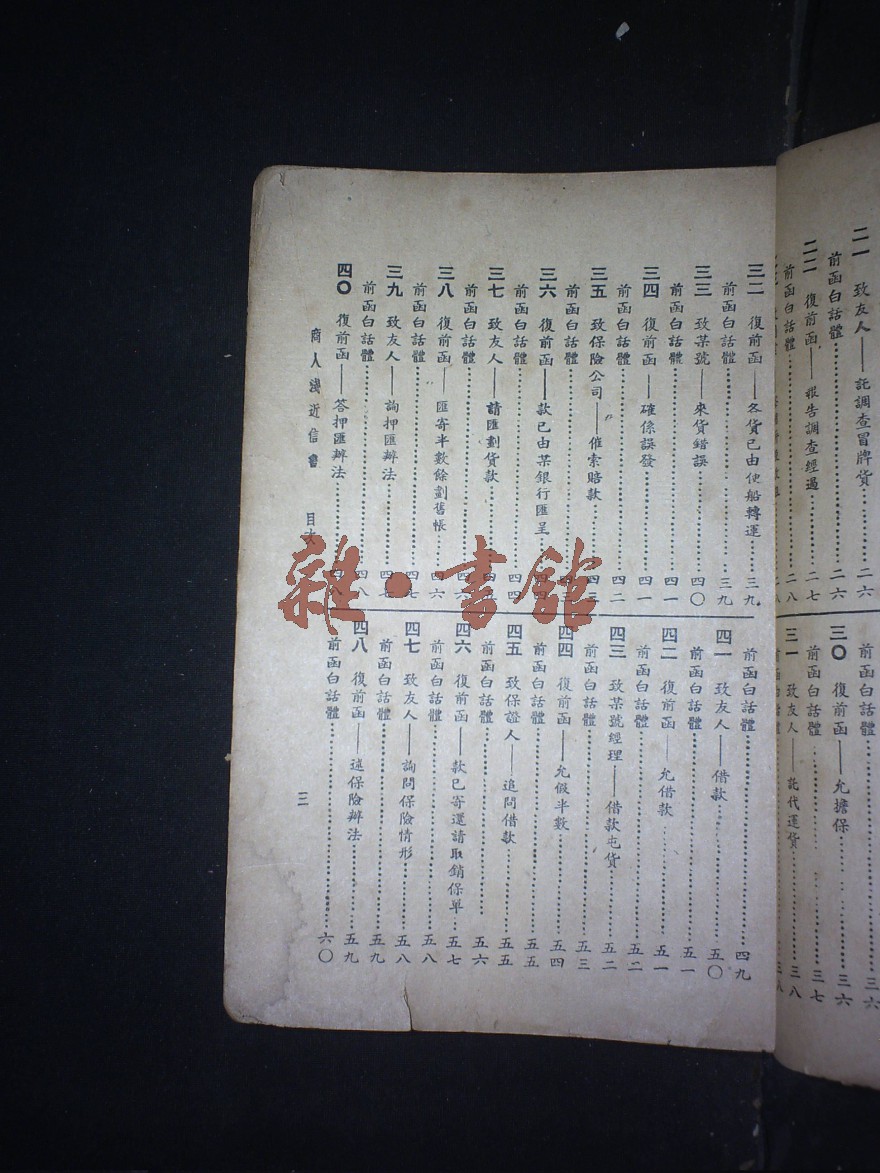 二一 致友人——託調查冒牌貨 二六
前函白話體 二六
二二 復前函——報告調查經過 二七
前函白話體 二八
三〇 復前函——允擔保 三六
前函白話體 三六
前函白話體 三七
三一 致友人——託代運貨 三八
前函白話體 三八
三二 復前函——各貨已由便船轉運 三九
前函白話體 三九
三三 致某號——來貨錯誤 四〇
前函白話體 四一
三四 復前函——確係誤發 四一
前函白話體 四二
三五 致保險公司——催索賠款 四三
前函白話體
三六 復前函——款已由某銀行匯呈
前函白話體 四四
三七 致友人——請匯劃貨款
前函白話體 四六
三八 復前函——匯寄半數餘劃舊帳 四六
前函白話體 四七
三九 致友人——詢押匯辦法 四七
前函白話體 四八
四〇 復前函——答押匯辦法 四八
前函白話體 四九
四一 致友人——借款 五〇
前函白話體 五一
四二 復前函——允借款 五一
前函白話體 五二
四三 致某號經理——借款屯貨 五二
前函白話體 五三
四四 復前函——允假半數 五四
前函白話體 五五
四五 致保證人——追問借款 五五
前函白話體 五六
四六 復前函——款已寄還請取銷保單 五七
前函白話體 五八
四七 致友人——詢問保險情形 五八
前函白話體 五九
四八 復前函——述保險辦法 五九
前函白話體 六〇
商人淺近信書 目次 三
雜·書館